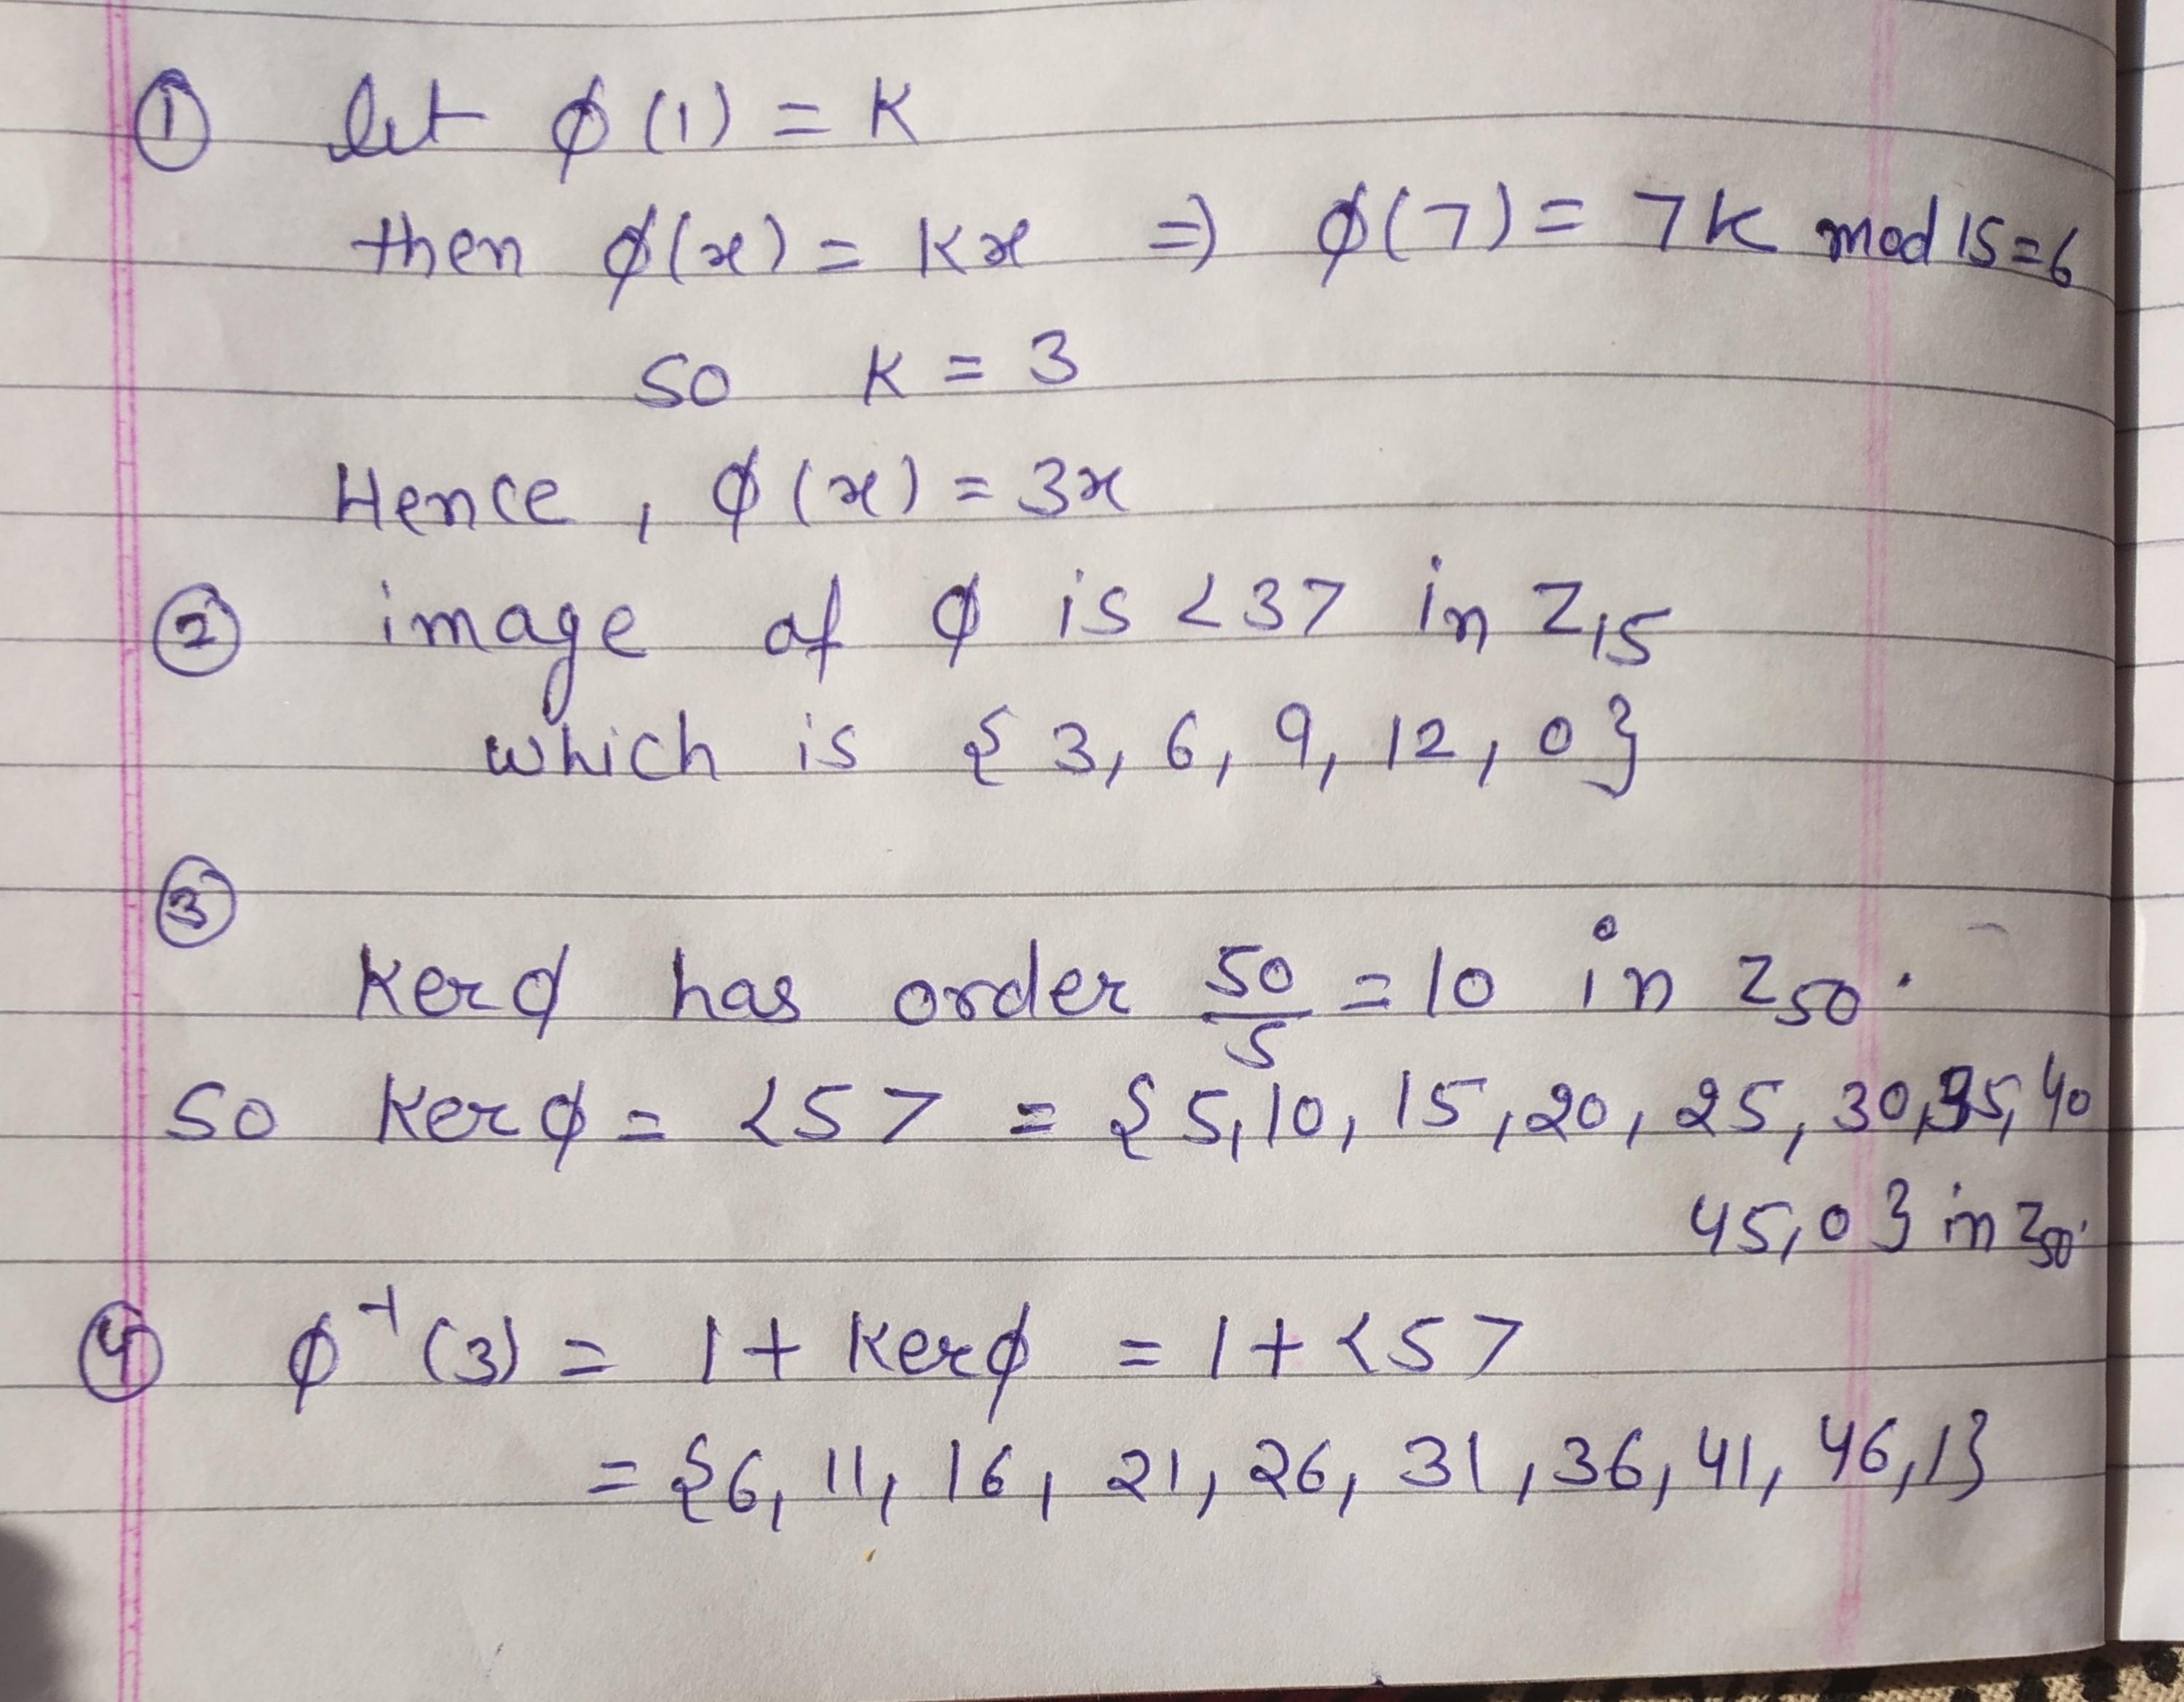 ① let ϕ(1) = K
then ϕ(x) = Kx ⇒ ϕ(7) = 7K mod 15 = 6
so K = 3
Hence, ϕ(x) = 3x
② image of ϕ is <3> in Z₁₅
which is {3, 6, 9, 12, 0}
③
Kerϕ has order 50/5 = 10 in Z₅₀.
So Kerϕ = <5> = {5, 10, 15, 20, 25, 30, 35, 40
45, 0} in Z₅₀.
④ ϕ⁻¹(3) = 1 + Kerϕ = 1 + <5>
= {6, 11, 16, 21, 26, 31, 36, 41, 46, 1}